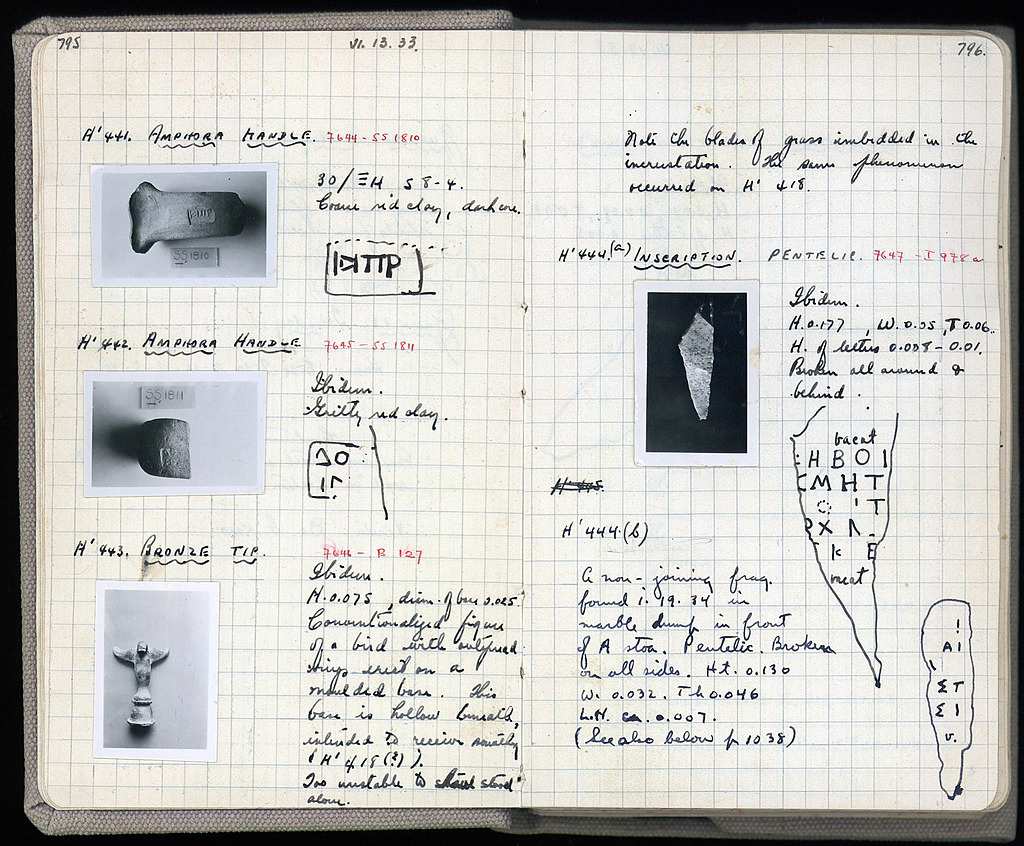 795
VI. 13. 33.
H' 441. AMPHORA HANDLE. 7644 - SS 1810
30/ΞH S 8-4.
Coarse red clay, dark core.
SS 1810
H' 442. AMPHORA HANDLE 7645 - SS 1811
SS 1811
Ibidem.
Gritty red clay.
H' 443. BRONZE TIP. 7646 - B 127
Ibidem.
H. 0.075, diam. of base 0.025.
Conventionalized figure
of a bird with outspread
wings erect on a
moulded base. This
base is hollow beneath,
intended to receive
(H' 418(?)).
Too unstable to stand
alone.
796.
Note the blades of grass imbedded in the
incrustation. The same phenomenon
occurred on H' 418.
H' 444.(a) INSCRIPTION. PENTELIC. 7647 - I 978 a
Ibidem.
H. 0.177, W. 0.05, T 0.06.
H. of letters 0.008 - 0.01.
Broken all around &
behind.
vacat
H B O I
C M H T
Τ
X Λ
K E
H' 445.
H' 444.(b)
A non-joining frag.
found i. 19. 34 in
marble dump in front
of A stoa. Pentelic. Broken
on all sides. Ht. 0.130
W. 0.032. Th 0.046
L.H. ca. 0.007.
(See also below p 1038)
A I
Σ T
Σ I
v.